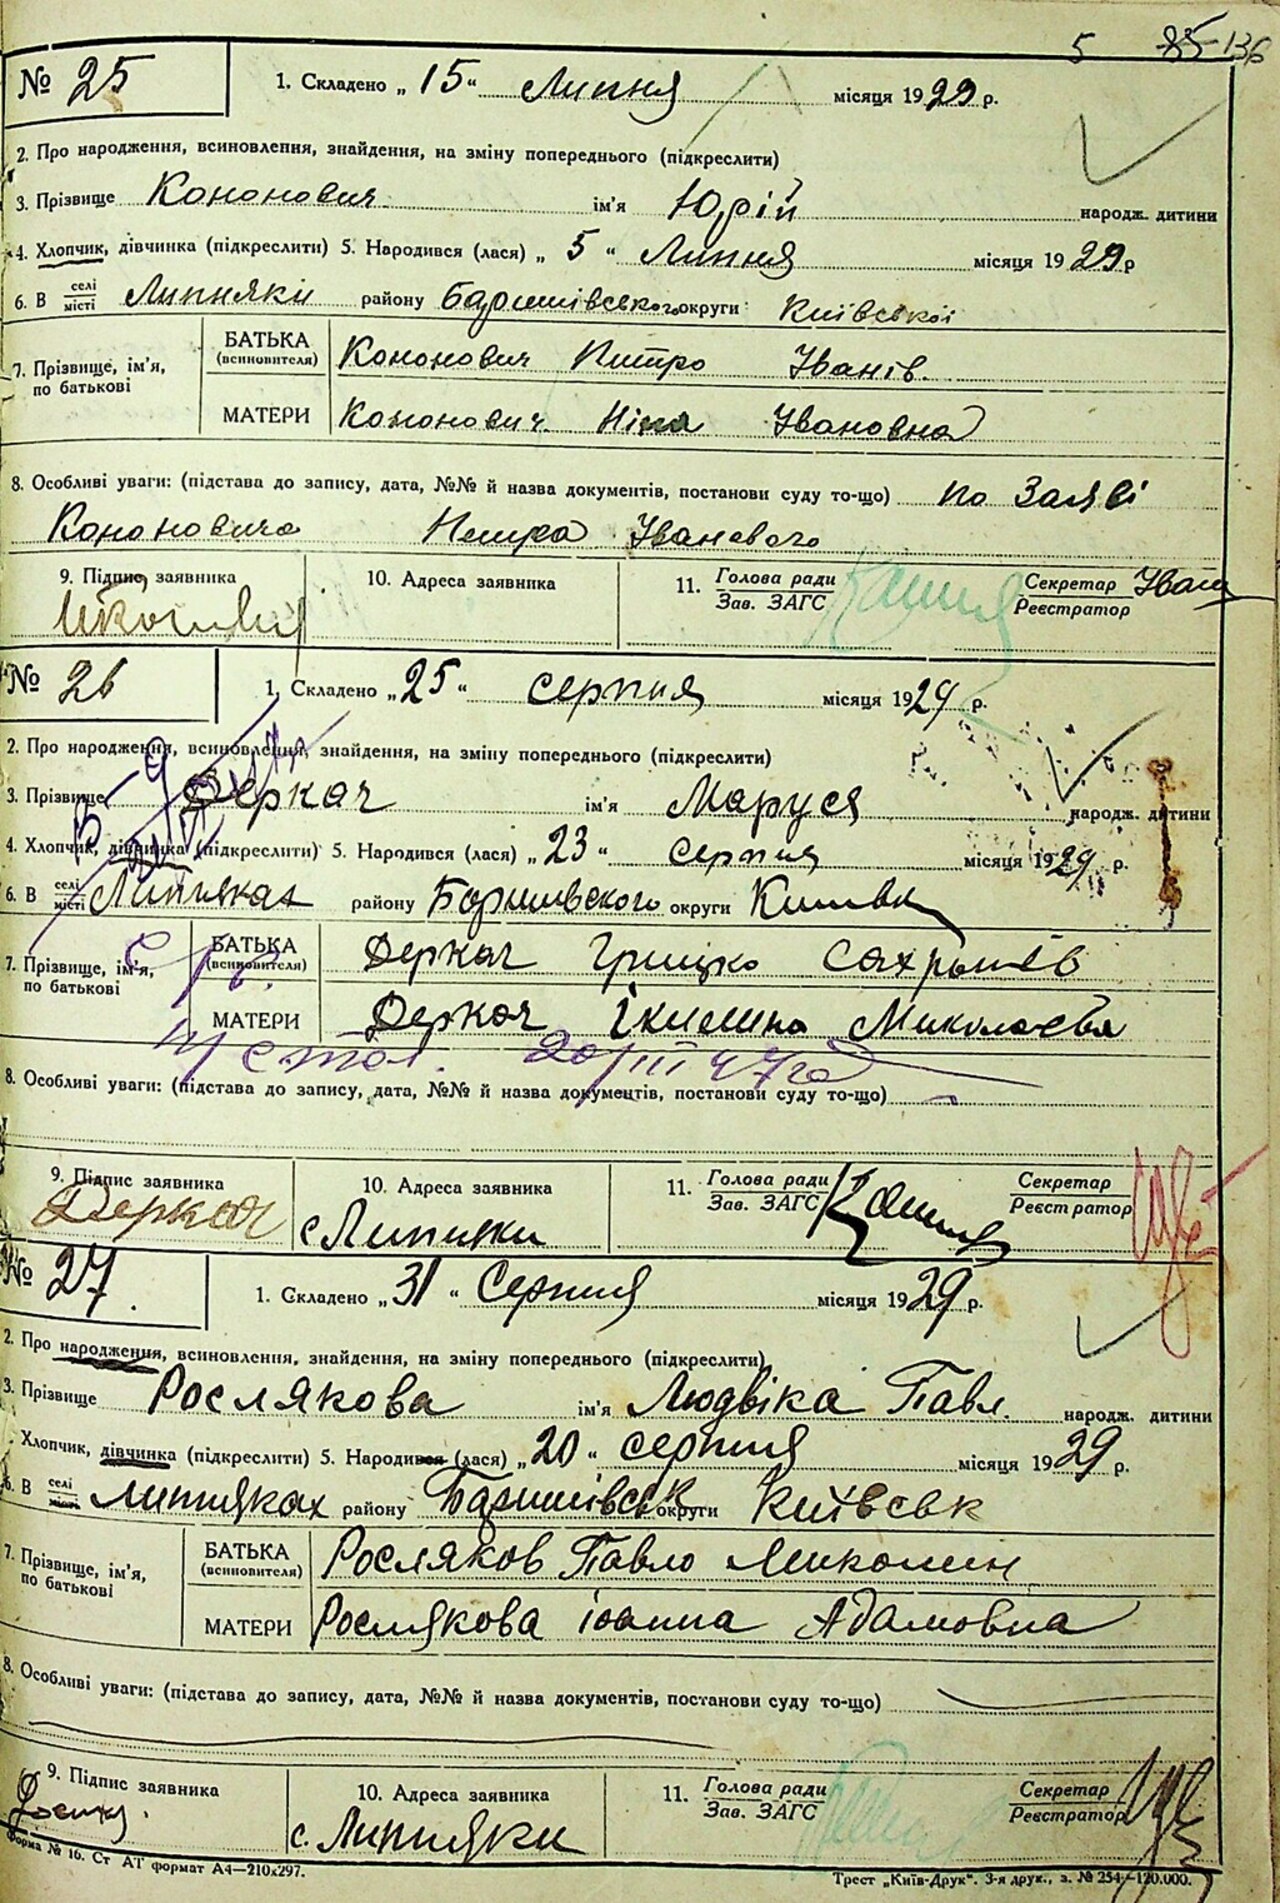 5 85 136
№ 25 1. Складено „ 15 “ Липня місяця 1929 р.
2. Про народження, всиновлення, знайдення, на зміну попереднього (підкреслити)
3. Прізвище Кононович ім'я Юрій народж. дитини
4. Хлопчик, дівчинка (підкреслити) 5. Народився (лася) „ 5 “ Липня місяця 1929 р
6. В селі місті Липняки району Баришівського округи Київської
7. Прізвище, ім'я, по батькові БАТЬКА (всиновителя) Кононович Питро Іванів.
МАТЕРИ Кононович Ніна Івановна
8. Особливі уваги: (підстава до запису, дата, №№ й назва документів, постанови суду то-що) по Заяві
Кононовича Петра Іванового
9. Підпис заявника 10. Адреса заявника 11. Голова ради Зав. ЗАГС Секретар Реєстратор
№ 26 1. Складено „ 25 “ серпня місяця 1929 р.
2. Про народження, всиновлення, знайдення, на зміну попереднього (підкреслити)
3. Прізвище Деркач ім'я Маруся народж. дитини
4. Хлопчик, дівчинка (підкреслити) 5. Народився (лася) „ 23 “ серпня місяця 1929 р.
6. В селі місті Липняках району Баришивского округи
7. Прізвище, ім'я, по батькові БАТЬКА (всиновителя) Деркач Грицко
МАТЕРИ Деркач Миколаєвя
20/III 47
8. Особливі уваги: (підстава до запису, дата, №№ й назва документів, постанови суду то-що)
9. Підпис заявника Деркач 10. Адреса заявника с Липняки 11. Голова ради Зав. ЗАГС Секретар Реєстратор
№ 27. 1. Складено „ 31 “ Серпня місяця 1929 р.
2. Про народження, всиновлення, знайдення, на зміну попереднього (підкреслити)
3. Прізвище Рослякова ім'я Людвіка Павл. народж. дитини
Хлопчик, дівчинка (підкреслити) 5. Народився (лася) „ 20 “ серпня місяця 1929 р.
6. В селі місті Липняках району Баришівськ округи Київськ
7. Прізвище, ім'я, по батькові БАТЬКА (всиновителя) Росляков Павло Миколин
МАТЕРИ Рослякова іоанна Адамовна
8. Особливі уваги: (підстава до запису, дата, №№ й назва документів, постанови суду то-що)
9. Підпис заявника 10. Адреса заявника с. Липняки 11. Голова ради Зав. ЗАГС Секретар Реєстратор
Форма № 16. Ст АТ формат А4—210x297. Трест „Київ-Друк“. 3-я друк., з. № 254—120.000.